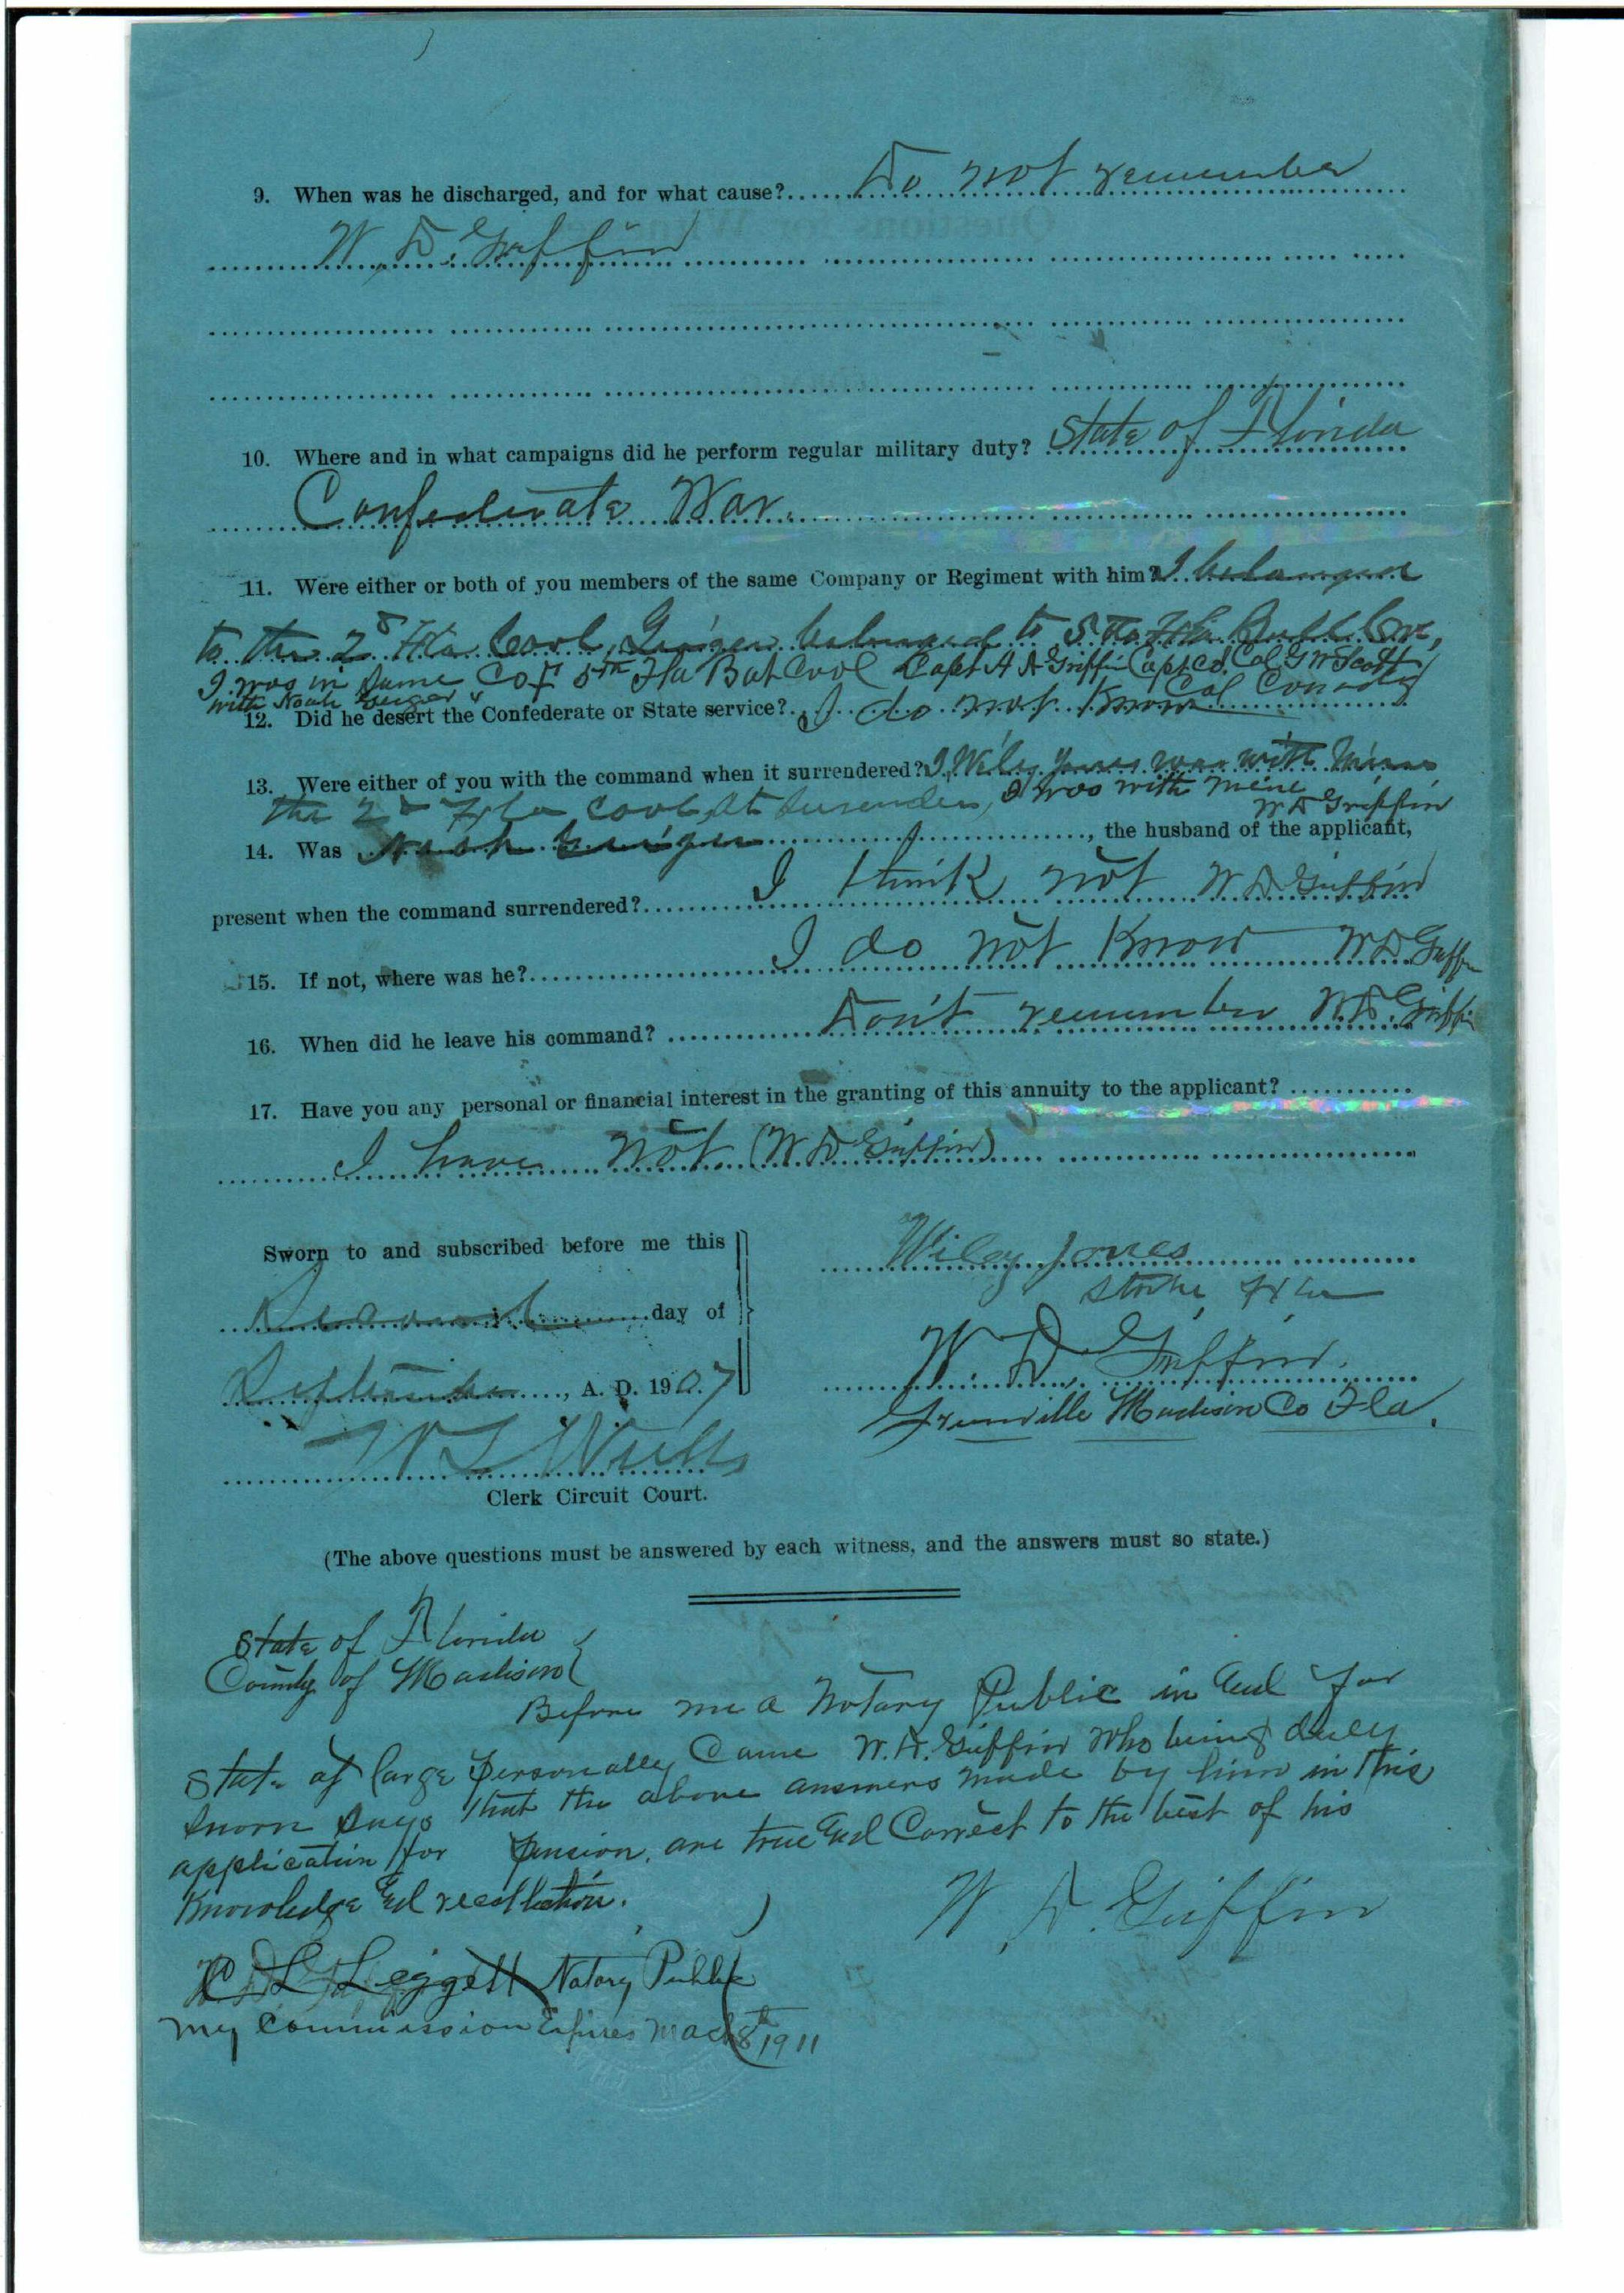 9. When was he discharged, and for what cause? Do not remember
W. D. Griffin
10. Where and in what campaigns did he perform regular military duty? State of Florida
Confederate War.
11. Were either or both of you members of the same Company or Regiment with him? I belonged
to the 2d Fla Cavl, Geiger belonged to 5th Fla Batl Cav,
I was in same Co F 5th Fla Bat Cavl Capt A A Griffin Capt Co. Col G W Scott
with Noah Geiger
12. Did he desert the Confederate or State service? I do not Know Cal
13. Were either of you with the command when it surrendered? I, Wiley Jones was with mine
the 2d Fla Cavl at Surrender, I was with mine
W D Griffin
14. Was Noah Geiger, the husband of the applicant,
present when the command surrendered? I think not W. D. Griffin
15. If not, where was he? I do not Know W D Griffin
16. When did he leave his command? Don't remember W. D. Griffin
17. Have you any personal or financial interest in the granting of this annuity to the applicant?
I have not. (W. D. Griffin)
Sworn to and subscribed before me this
Second day of
September, A. D. 1907
Clerk Circuit Court.
Wiley Jones
Fla
W. D. Griffin.
Greenville Madison Co Fla.
(The above questions must be answered by each witness, and the answers must so state.)
State of Florida
County of Madison
Before me a Notary Public in and for
State at large personally Came W. D. Griffin who being duly
sworn says that the above answers made by him in this
application for pension, are true and Correct to the best of his
Knowledge and recollection.
W. D. Griffin
C L Leggett Notary Public
My Commission Expires Mach 8th 1911